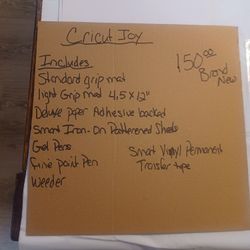 Cricut Joy
150.00
Brand
New
Includes
Standard grip mat
light Grip mat 4.5 x 12"
Deluxe paper Adhesive backed
Smart Iron-On Patterened Sheets
Gel Pens
Smart Vinyl Permanent
Fine point Pen
Transfer tape
Weeder